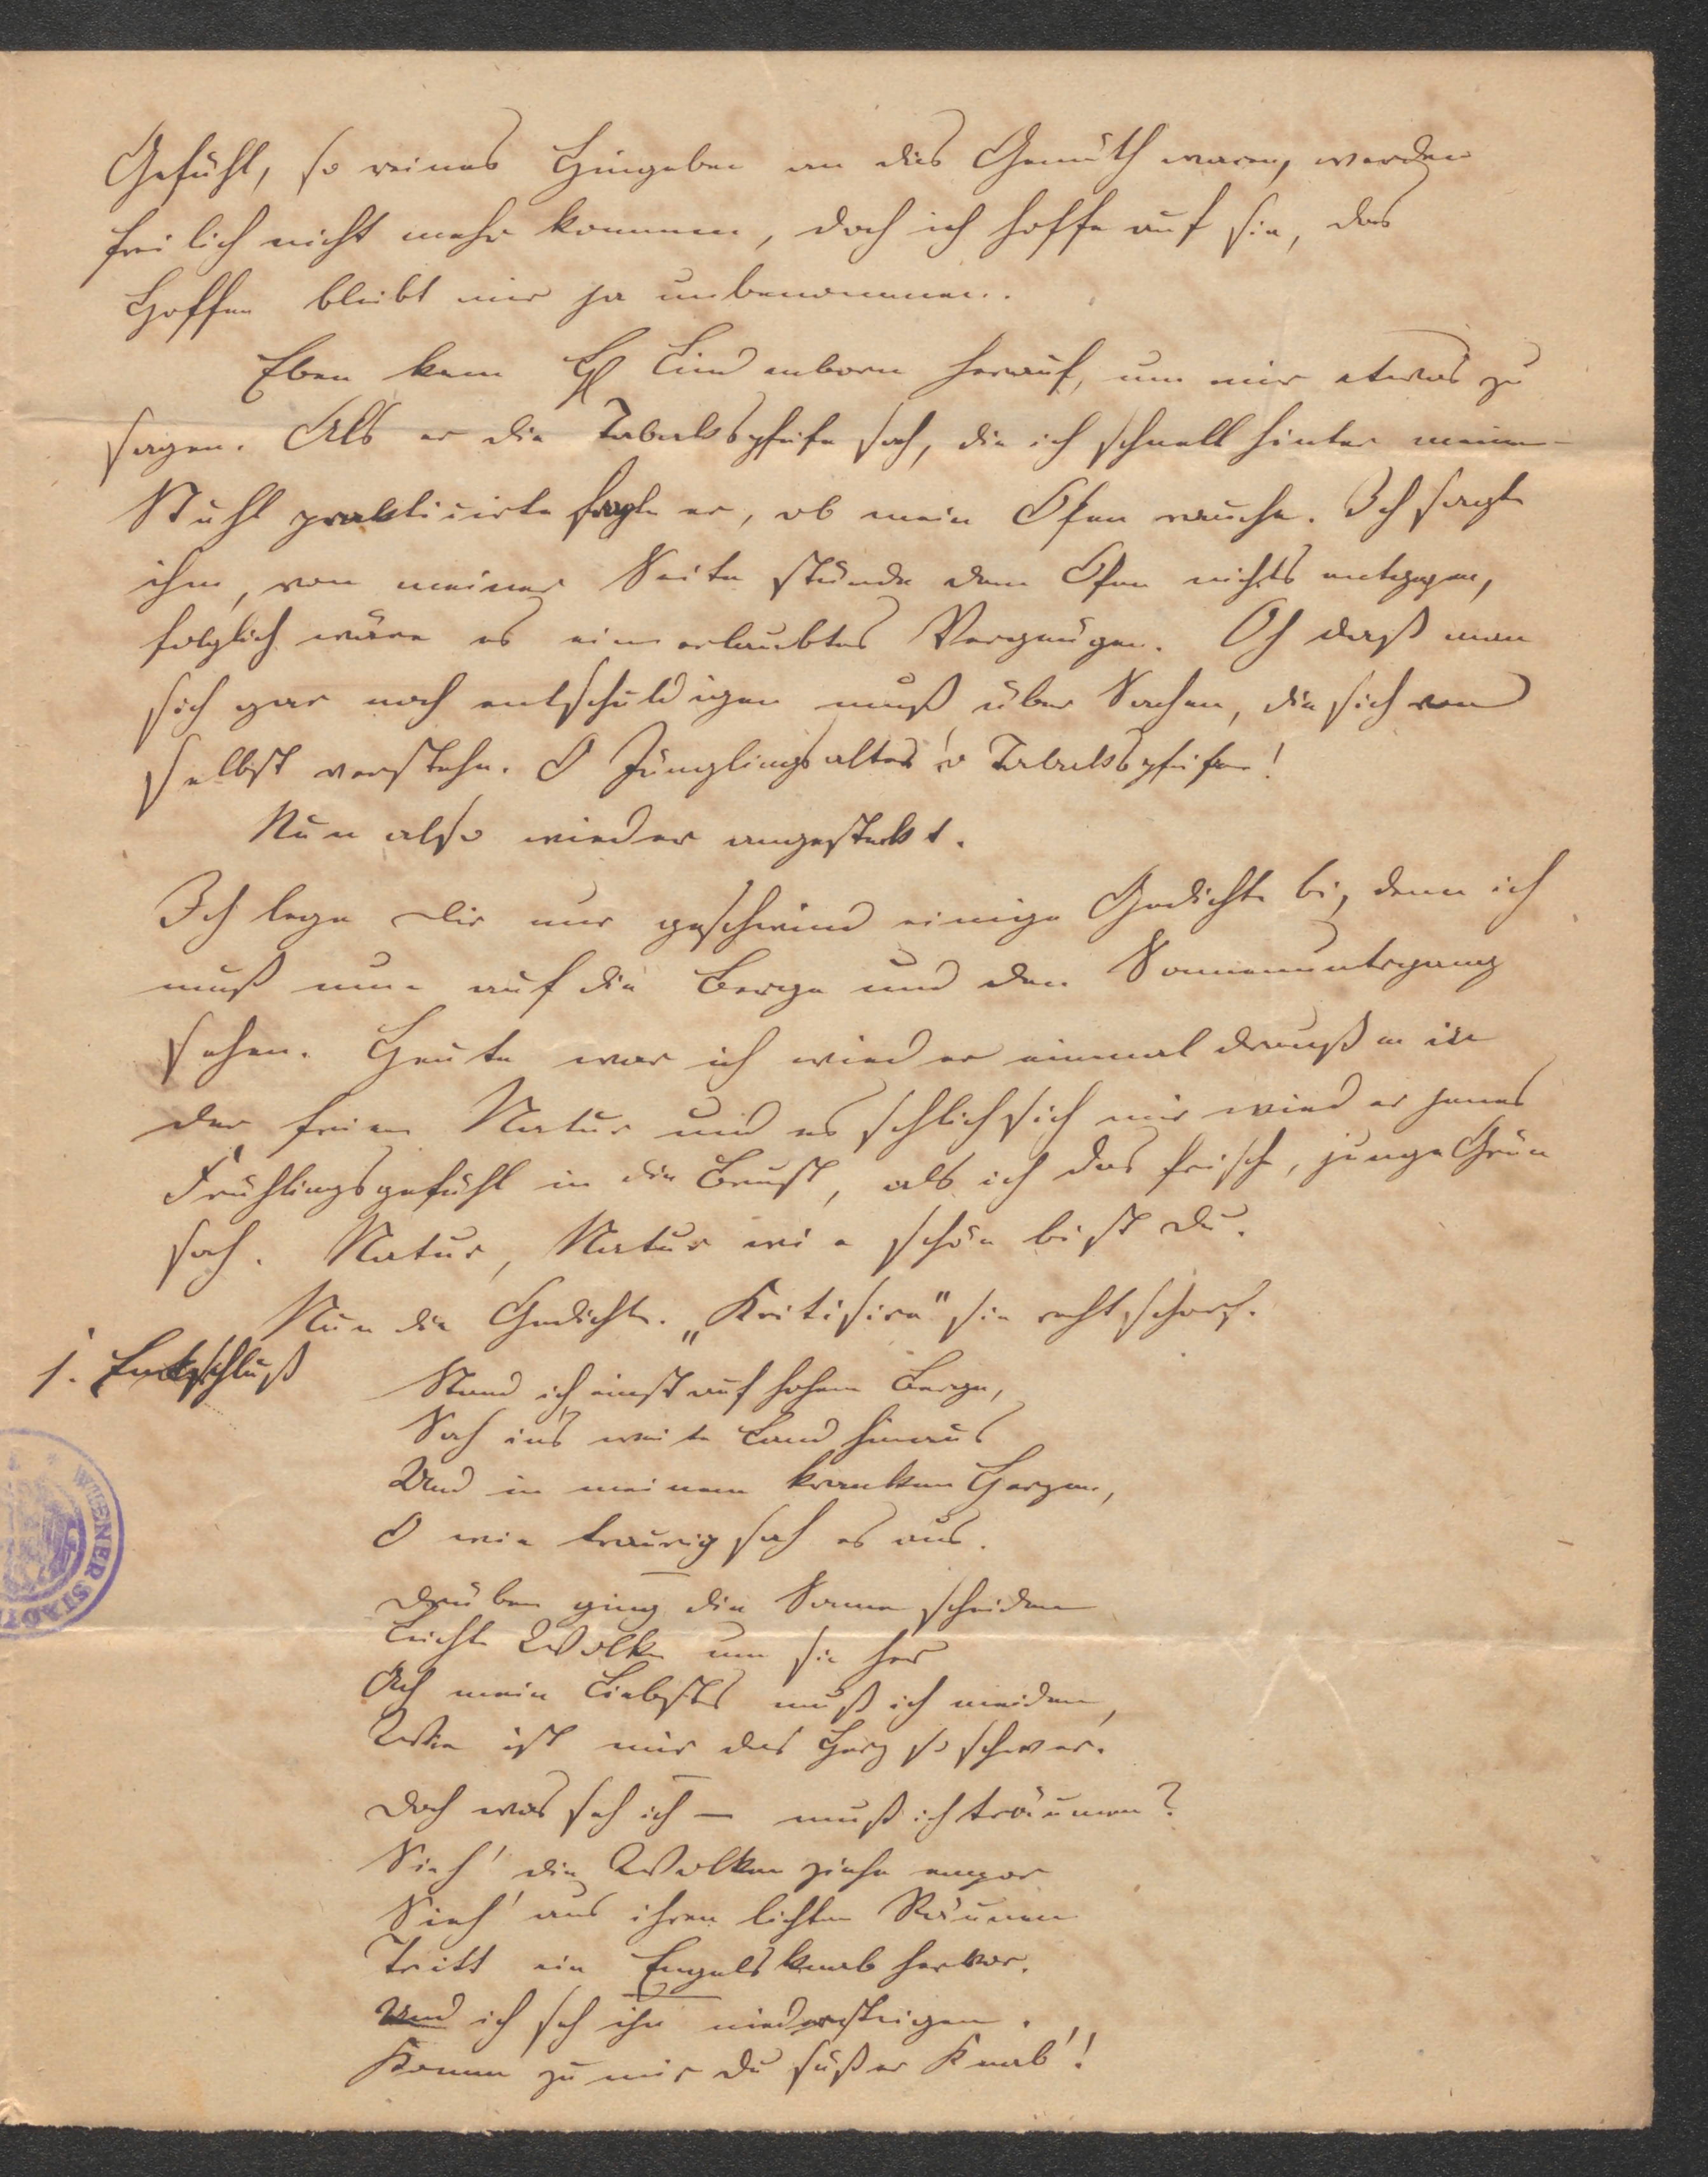 Gefühl, so reines Hingeben an das Gemüth waren, werden
freilich nicht mehr kommen, doch ich hoffe auf sie, das
Hoffen bleibt mir ja unbenommen.
Eben kam H Lindenborn herauf, um mir etwas zu
sagen. Als er die Tabakspfeife sah, die ich schnell hinter meinen
Stuhl prakticirte fragte er, ob mein Ofen rauche. Ich sagte
ihm, von meiner Seite stünde dem Ofen nichts entgegen,
folglich wäre es ein erlaubtes Vergnügen. Oh daß man
sich gar noch entschuldigen muß über Sachen, die sich von
selbst verstehn. O Jünglingsalter! o Tabakspfeifen!
Nun also wieder angesteckt.
Ich lege Dir nur geschwind einige Gedichte bei, denn ich
muß nun auf die Berge und den Sonnenuntergang
sehen. Heute war ich wieder einmal draußen in
der freien Natur und es schlich sich mir wieder jenes
Frühlingsgefühl in die Brust, als ich das frische, junge Grün
sah. Natur, Natur wie schön bist du.
Nun die Gedichte. „Kritisire" sie recht scharf.
1. Entschluß
Stand ich einst auf hohem Berge,
Sah in's weite Land hinaus
Und in meinem kranken Herzen,
O wie traurig sah es aus.
Drüben ging die Sonne scheiden
Leichte Wolken um sie her
Ach mein Liebstes muß ich meiden,
Wie ist mir das Herz so schwer.
Doch was seh ich — muß ich träumen?
Sieh' die Wolken ziehn empor
Sieh' aus ihren lichten Räumen
Tritt ein Engelsknab hervor.
Und ich seh ihn niedersteigen.
Komm zu mir du süßer Knab'!
WIENER STADT